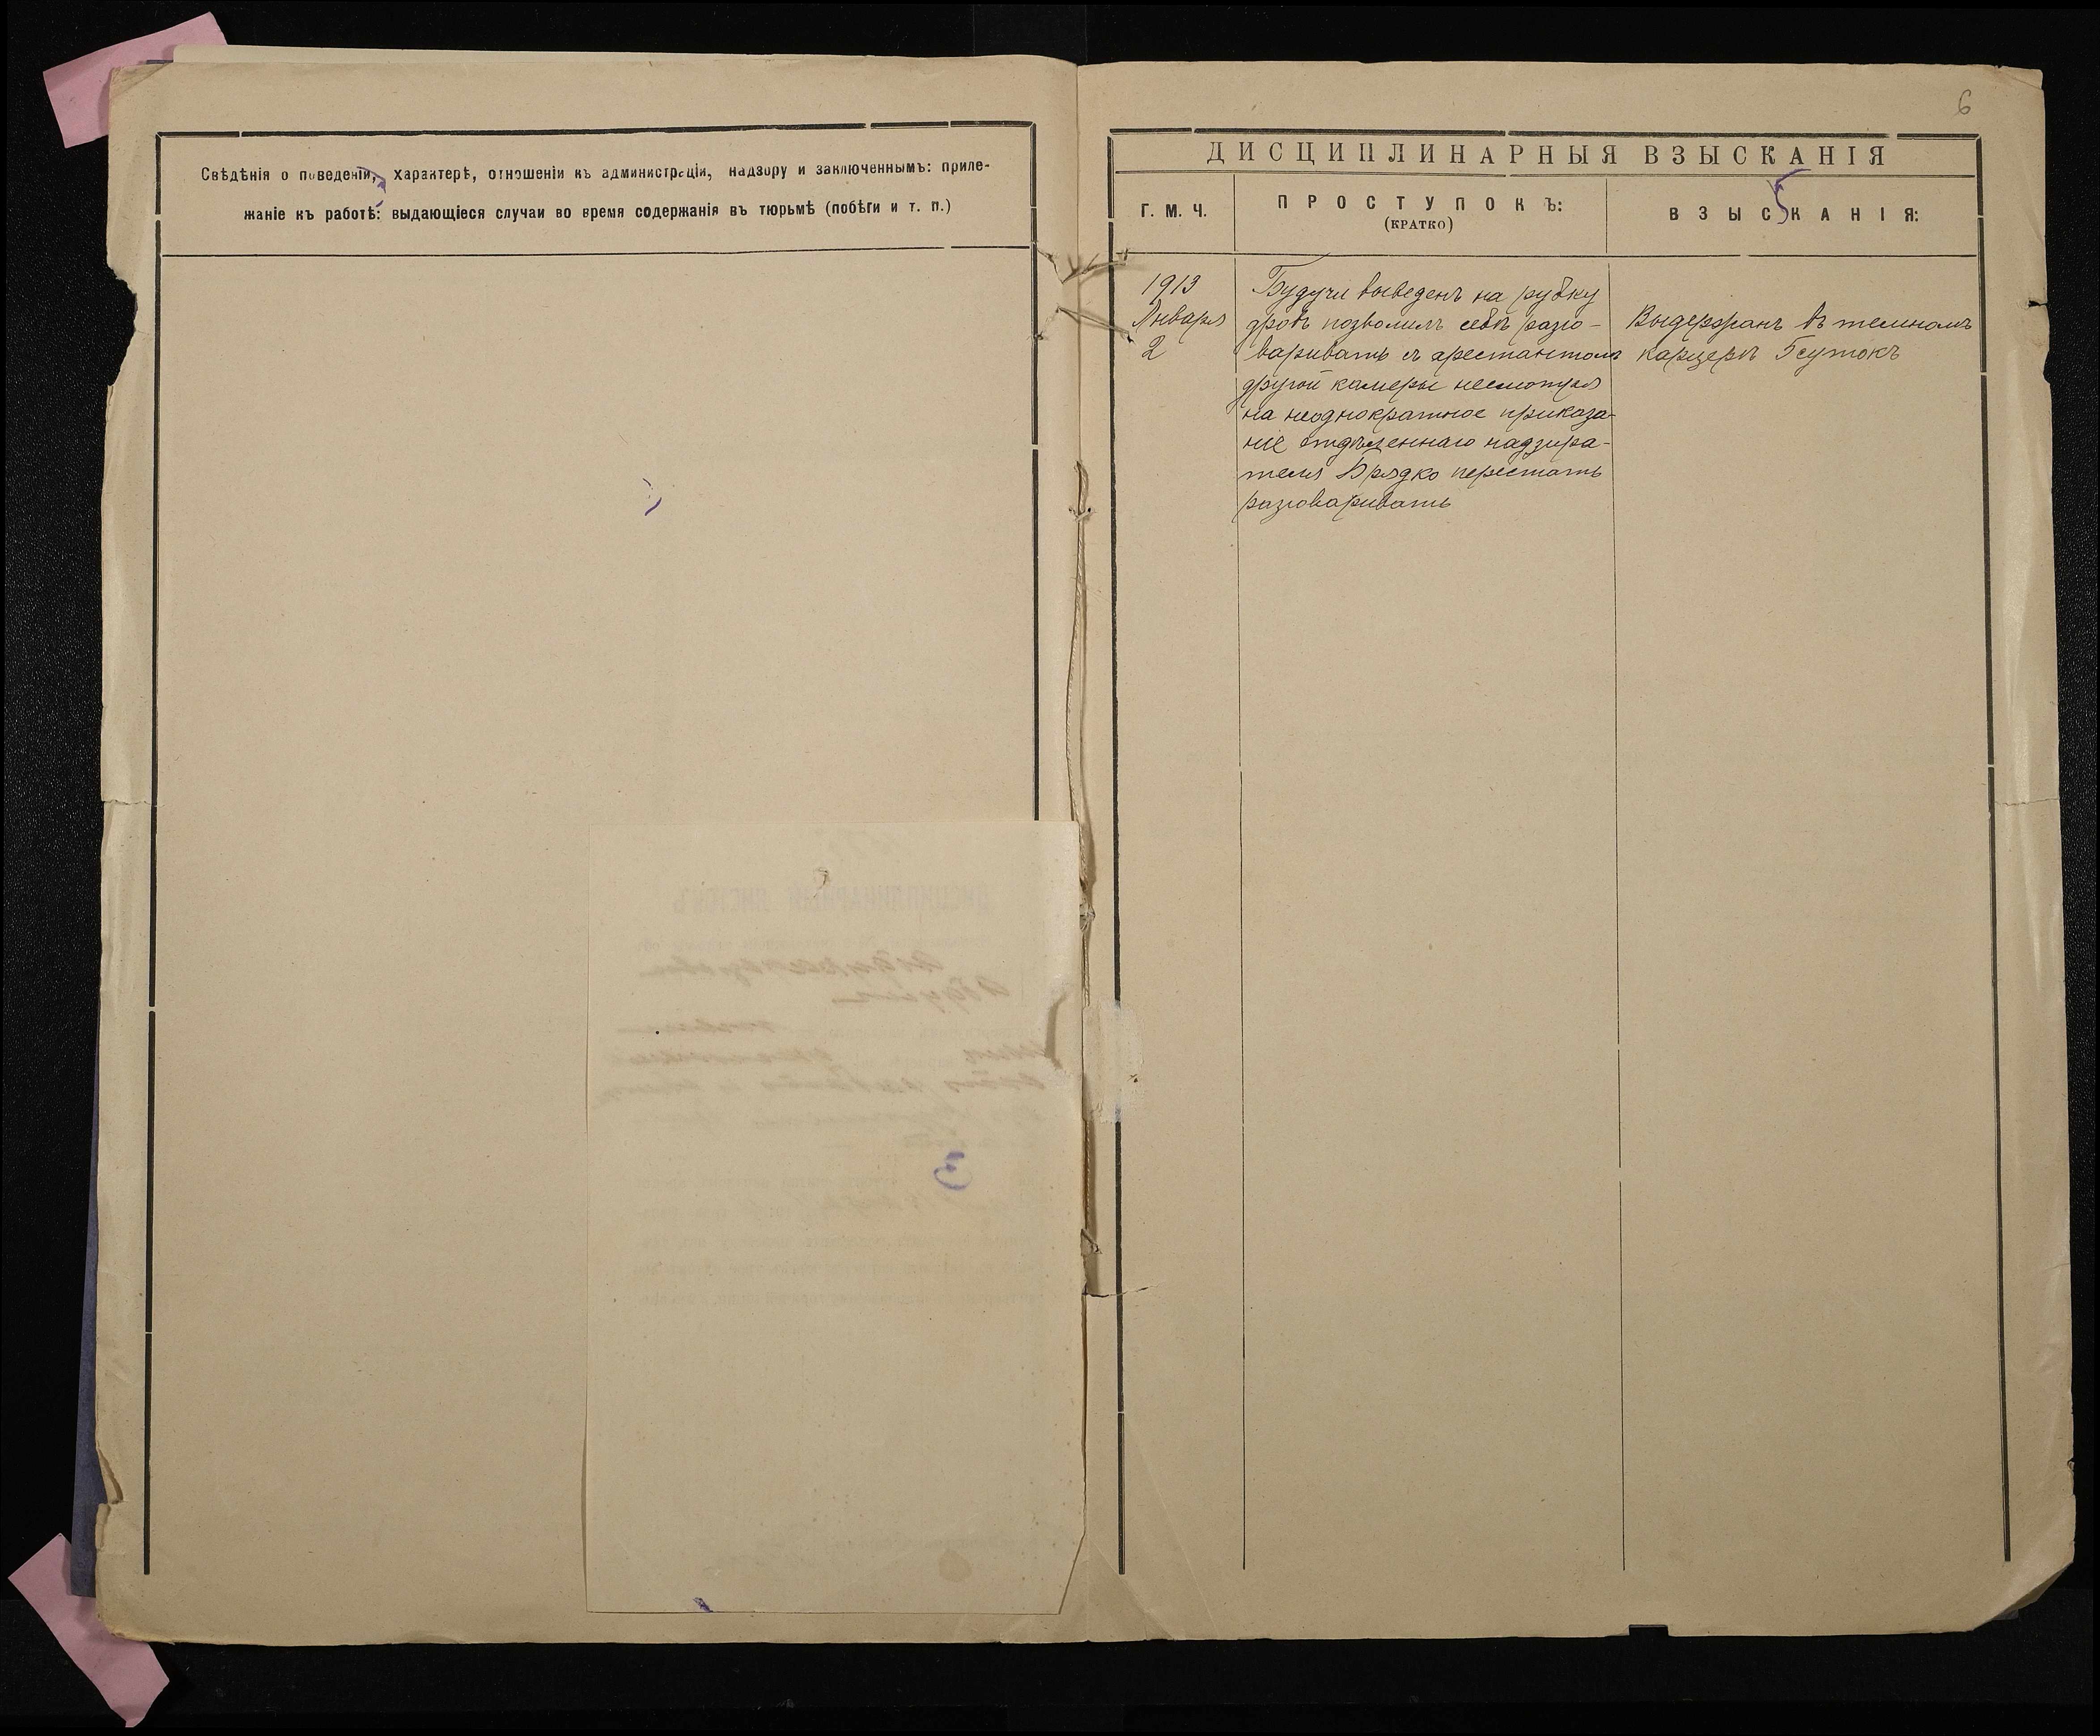 Свѣдѣнія о поведеніи, характерѣ, отношеніи къ администраціи, надзору и заключеннымъ: приле-
жаніе къ работѣ: выдающіеся случаи во время содержанія въ тюрьмѣ (побѣги и т. п.)
ДИСЦИПЛИНАРНЫЙ ЛИСТОКЪ
3
6
ДИСЦИПЛИНАРНЫЯ ВЗЫСКАНІЯ
5
Г. М. Ч.
ПРОСТУПОКЪ:
(КРАТКО)
ВЗЫСКАНІЯ:
1913
Января
2
Будучи выведенъ на рубку
дровъ позволилъ себѣ разго-
варивать съ арестантомъ
другой камеры несмотря
на неоднократное приказа-
ніе отдѣленнаго надзира-
теля Врядко перестать
разговаривать
Выдержанъ въ темномъ
карцерѣ 5 сутокъ